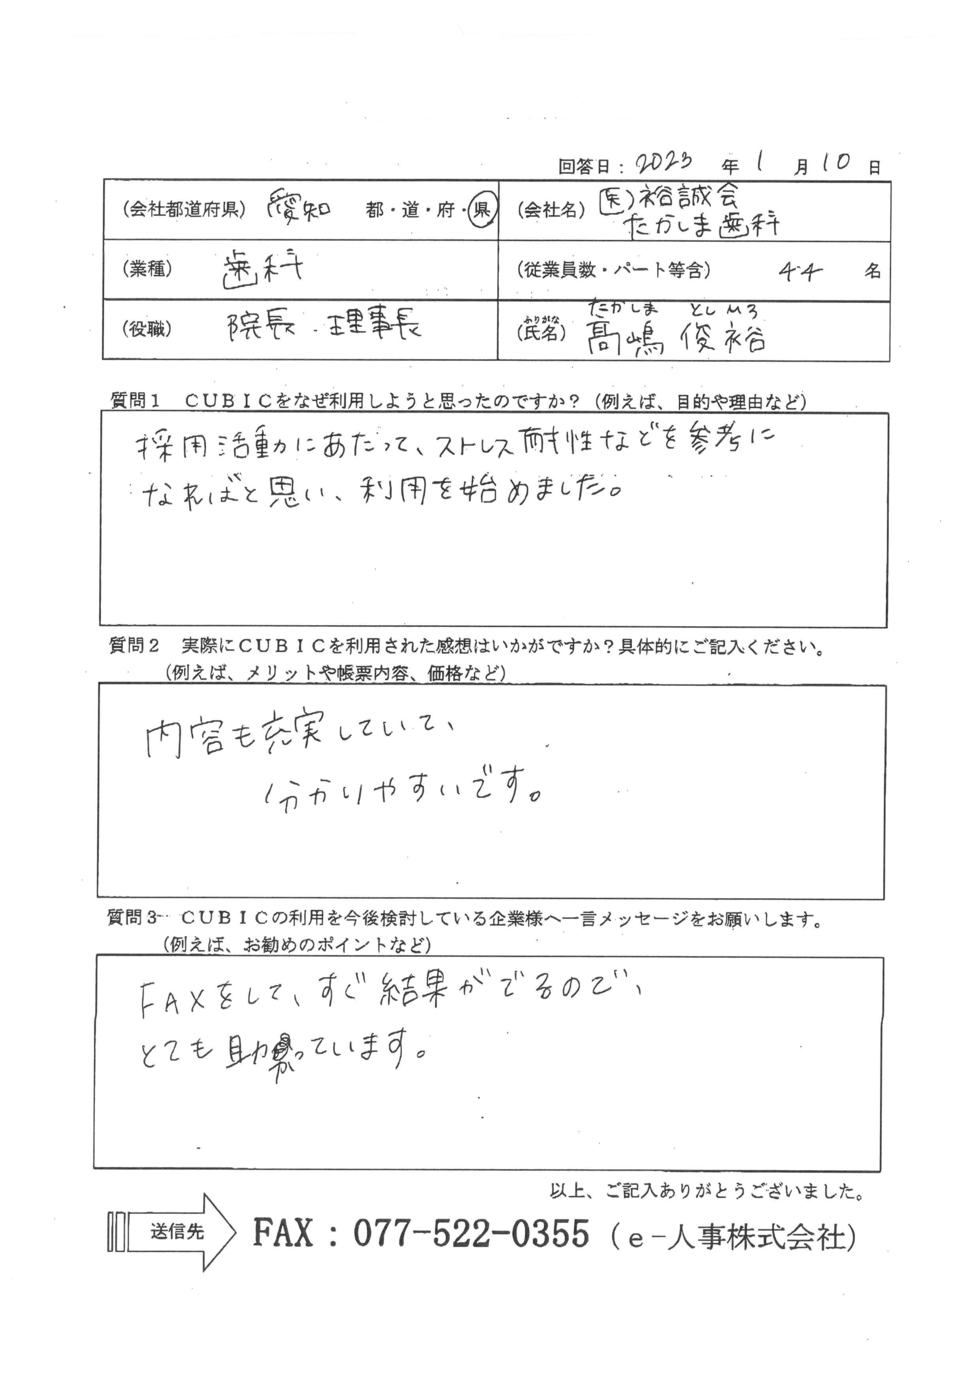 回答日：2023 年 1 月 10 日
(会社都道府県) 愛知 都・道・府・県 (会社名) 医)裕誠会
たかしま歯科
(業種) 歯科 (従業員数・パート等含) 44 名
(役職) 院長・理事長 (氏名) 髙嶋 俊裕
ふりがな たかしま としひろ
質問１ ＣＵＢＩＣをなぜ利用しようと思ったのですか？（例えば、目的や理由など）
採用活動にあたって、ストレス耐性などを参考に
なればと思い、利用を始めました。
質問２ 実際にＣＵＢＩＣを利用された感想はいかがですか？具体的にご記入ください。
（例えば、メリットや帳票内容、価格など）
内容も充実していて、
分かりやすいです。
質問３ ＣＵＢＩＣの利用を今後検討している企業様へ一言メッセージをお願いします。
（例えば、お勧めのポイントなど）
FAXをして、すぐ結果がでるので、
とても助かっています。
以上、ご記入ありがとうございました。
送信先 FAX：077-522-0355（e-人事株式会社）